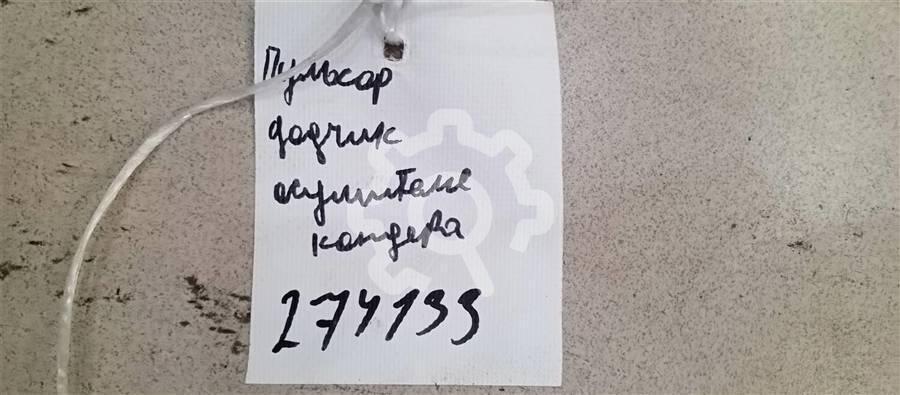 Пульсар
дадчик
осушителя
кандера
274133